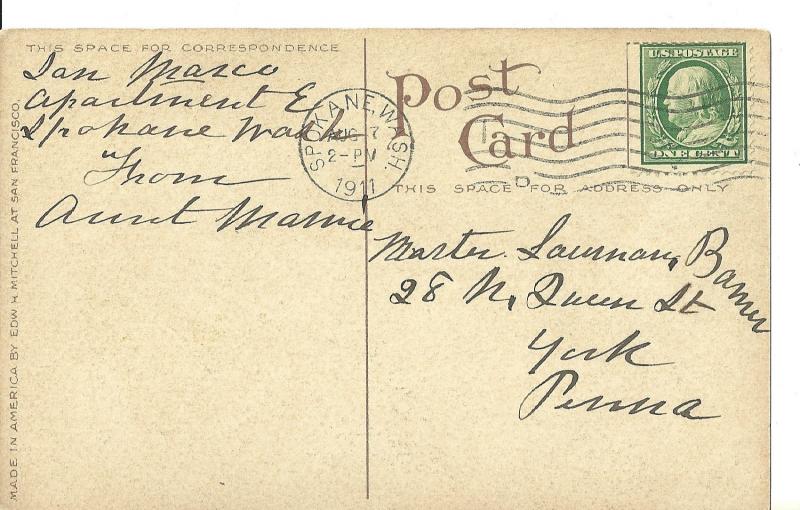 THIS SPACE FOR CORRESPONDENCE
San Marco
Apartment E
Spokane Wash
"From
Aunt Mamie
MADE IN AMERICA BY EDW. H. MITCHELL AT SAN FRANCISCO.
Post
Card
SPOKANE, WASH.
AUG 7
2-PM
1911
U.S. POSTAGE
ONE CENT
THIS SPACE FOR ADDRESS ONLY
Master
28 N. Queen St
York
Penna